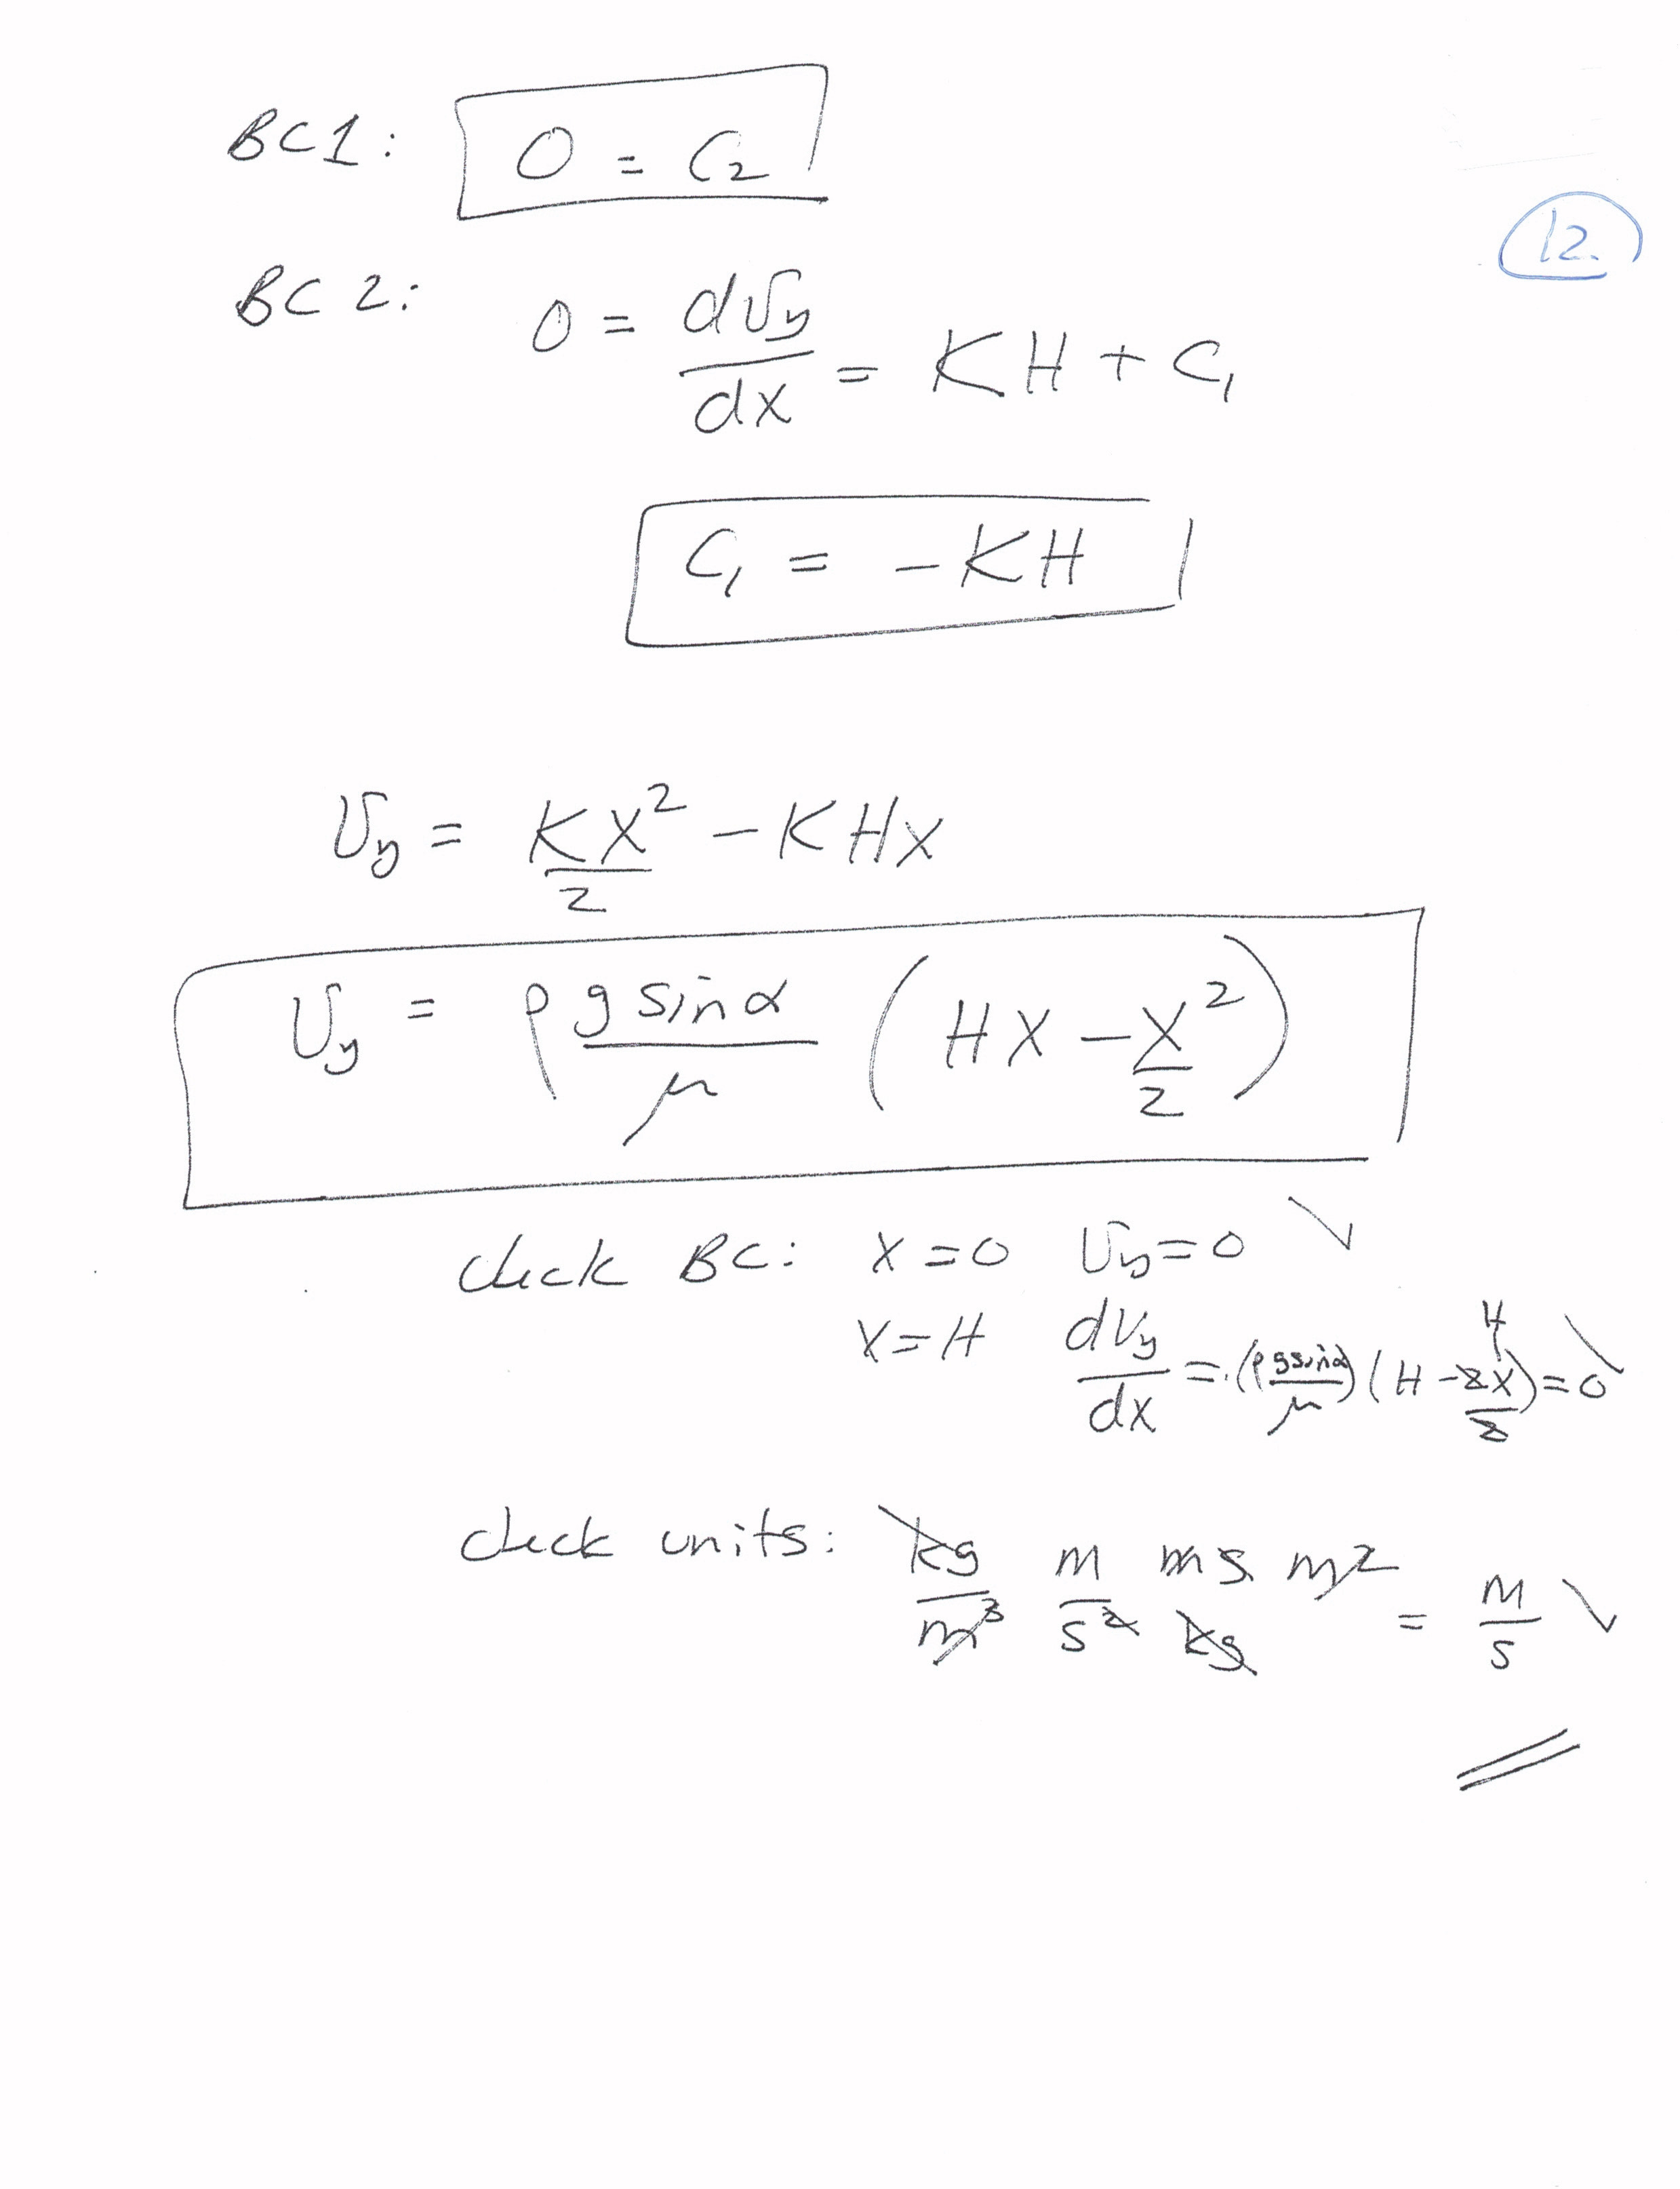 BC1: 0 = C₂
12.
BC 2: 0 = dv_y/dx = KH + C₁
C₁ = -KH
v_y = Kx²/2 - KHx
v_y = ρ g sinα/μ (Hx - x²/2)
check BC: x=0 v_y=0 ✓
x=H dv_y/dx = (ρ g sinα/μ)(H - 2x/2) = 0 ✓
H
check units: kg/m³ m/s² ms/kg m² = m/s ✓